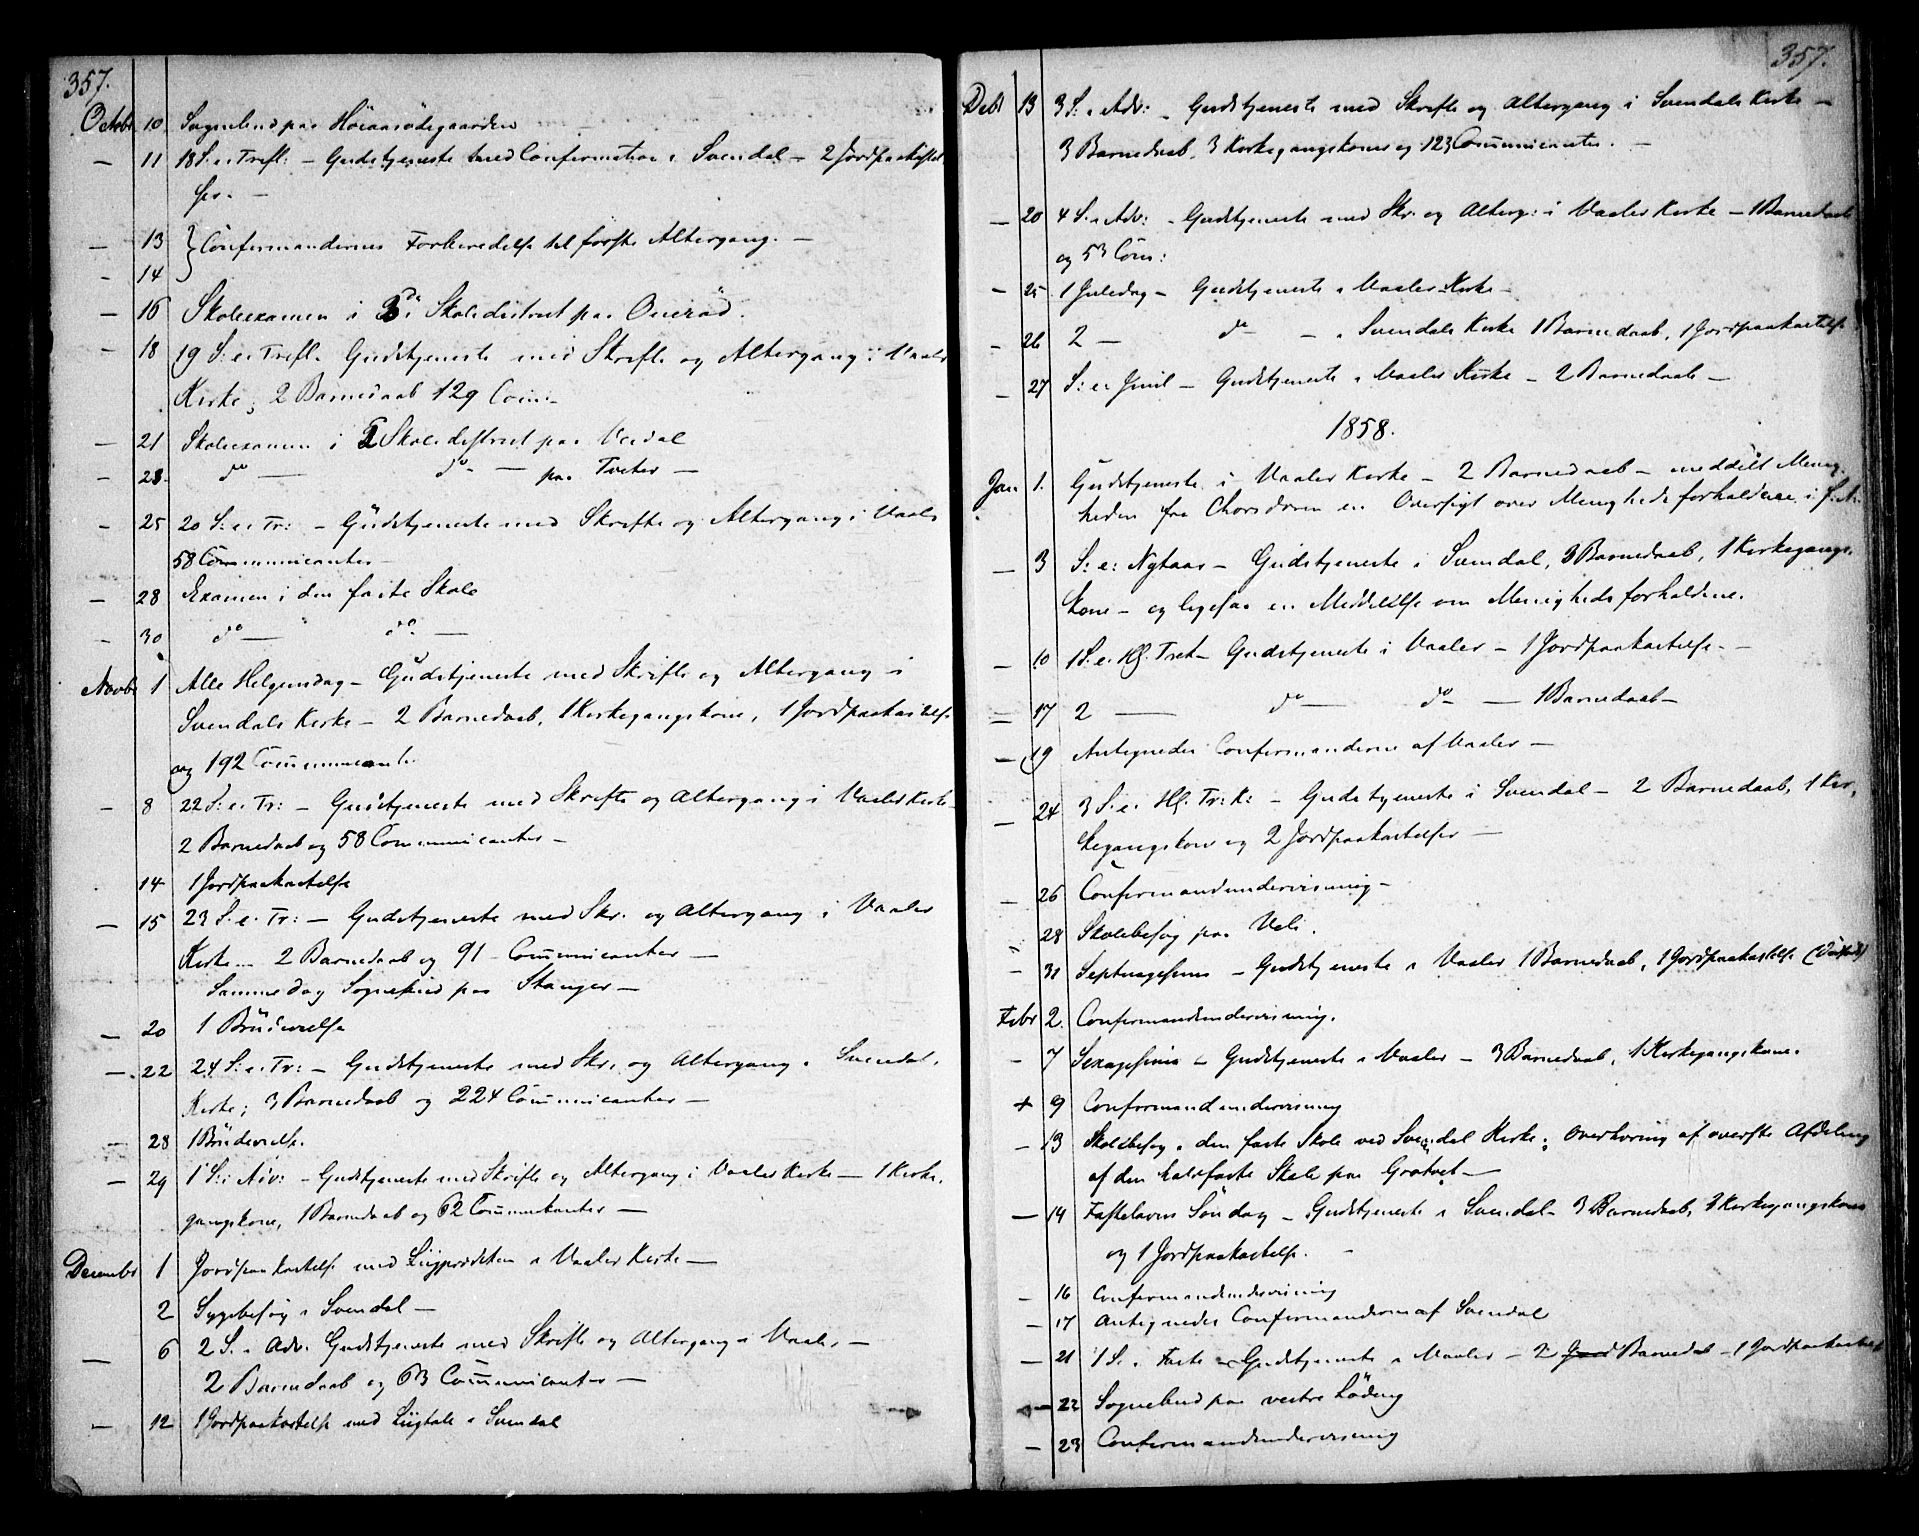 357.
Octobr 10 Sognebud paa Höiaasödegaarden
— 11 18 S. e. Trefl: – Gudstjeneste med Confirmation i Svendal – 2 Jordpaakastel
ser. –
— 13 } Confirmandernes Forberedelse til første Altergang. –
— 14
— 16 Skoleexamen i 3die Skoledistrict paa Overöd.
— 18 19 S. e. Trefl. Gudstjeneste med Skrifte og Altergang i Vaaler
Kirke; 2 Barnedaab 129 Com:
— 21 Skoleexamen i Skoledistrict paa Verdal
— 23. do — do — paa Tveter —
— 25 20 S. e. Tr: – Gudstjeneste med Skrifte og Altergang i Vaaler
58 Communicanter –
— 28 Examen i den faste Skole
— 30 do — do —
Novbr 1 Alle Helgensdag – Gudstjeneste med Skrifte og Altergang i
Svendals Kirke – 2 Barnedaab, 1 Kirkegangskone, 1 Jordpaakastelse
og 192 Communicanter
— 8 22 S. e. Tr: – Gudstjeneste med Skrifte og Altergang i Vaaler Kirke –
2 Barnedaab og 58 Communicanter –
14 1 Jordpaakastelse
— 15 23 S. e. Tr: – Gudstjeneste med Skr. og Altergang i Vaaler
Kirke – 2 Barnedaab og 91 Communicanter —
Samme dag Sognebud paa Stanger —
— 20 1 Brudevielse
— 22 24 S. e. Tr: – Gudstjeneste med Skr. og Altergang i Svendal.
Kirke; 3 Barnedaab og 224 Communicanter —
— 28 1 Brudevielse.
— 29 1 S: i Adv: – Gudstjeneste med Skrifte og Altergang i Vaaler Kirke — 1 Kirke,
gangskone, 1 Barnedaab og 62 Communicanter —
Decembr 1 Jordpaakastelse med Liigprædiken i Vaaler Kirke —
2 Sygebesøg i Svendal —
— 6 2 S. i Adv. Gudstjeneste med Skrifte og Altergang i Vaaler —
2 Barnedaab og 63 Communicanter —
— 12 1 Jordpaakastelse med Liigtale i Svendal
357.
Debr 13 3 S. i Adv: – Gudstjeneste med Skrifte og Altergang i Svendals Kirke —
3 Barnedaab, 3 Kirkegangskoner og 123 Communicanter. —
— 20 4 S. i Adv: – Gudstjeneste med Skr. og Alterg: i Vaaler Kirke – 1 Barnedaab
og 53 Com:
— 25 1 Juledag – Gudstjeneste i Vaaler Kirke –
— 26 2 — do — i Svendals Kirke 1 Barnedaab, 1 Jordpaakastelse
— 27 S: e. Juul – Gudstjeneste i Vaaler Kirke – 2 Barnedaab —
1858.
Jan. 1. Gudstjeneste i Vaaler Kirke – 2 Barnedaab – meddeelt Menig-
heden fra Chorsdøren en Oversigt over Menighedsforholdene i f. A.
— 3 S: e: Nytaar – Gudstjeneste i Svendal, 3 Barnedaab, 1 Kirkegangs-
kone – og ligesaa en Meddelelse om Menighedsforholdene.
— 10 1 S. e. Hl. Trek – Gudstjeneste i Vaaler – 1 Jordpaakastelse. –
— 17 2 — do — do — 1 Barnedaab –
— 19 Antegnedes Confirmanderne af Vaaler —
— 24 3 S. e. Hl. Tr: K: – Gudstjeneste i Svendal – 2 Barnedaab, 1 Kir,
kegangskone og 2 Jordpaakastelser —
— 26 Confirmandundervisning –
" 28 Skolebesøg paa Veli.
— 31 Septuagesima – Gudstjeneste i Vaaler 1 Barnedaab, 1 Jordpaakastelse
Febr 2. Confirmandundervisning.
— 7 Sexagesima – Gudstjeneste i Vaaler – 3 Barnedaab, 1 Kirkegangskone.
+ 9 Confirmandundervisning
— 13 Skolebesøg i den faste Skole ved Svendal Kirke; Overhøring af øverste Afdeling
af den halvfaste Skole paa Gratvet —
— 14 Fastelavns Søndag – Gudstjeneste i Svendal – 3 Barnedaab, 1 Kirkegangskone
og 1 Jordpaakastelse. –
— 16 Confirmandundervisning
— 17 Antegnedes Confirmanderne af Svendal
— 21 1 S. i Faste – Gudstjeneste i Vaaler – 2 Jord Barnedaab – 1 Jordpaakastelse
— 22 Sognebud paa vestre Löding
— 23 Confirmandundervisning